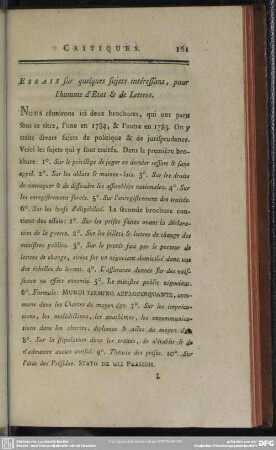 CRITIQUES. 161
ESSAIS sur quelques sujets intéressans, pour
l'homme d'Etat & de Lettres.
NOUS réunirons ici deux brochures, qui ont paru
sous ce titre, l'une en 1784, & l'autre en 1785. On y
traite divers sujets de politique & de jurisprudence.
Voici les sujets qui y sont traités. Dans la premiere bro-
chure: 1°. Sur le privilége de juger en dernier ressort & sans
appel. 2°. Sur les édits & mains-levées. 3°. Sur les droits
de convoquer & de dissoudre les assemblées nationales. 4°. Sur
les enregistremens forcés. 5°. Sur l'enregistrement des traités.
6°. Sur les brefs d'éligibilité. La seconde brochure con-
tient des essais: 1°. Sur les prises faites avant la déclara-
tion de la guerre. 2°. Sur les billets & lettres de change des
ministres publics. 3°. Sur le protêt fait par le porteur de
lettres de change, tirées sur un négociant domicilié dans une
des échelles du levant. 4°. L'assurance donnée sur des vais-
seaux ou effets ennemis. 5°. Le ministre public négociant.
6°. Formule: MUNDI TERMINO APPROPINQUANTE, com-
mune dans les Chartes du moyen âge. 7°. Sur les impréca-
tions, les malédictions, les anathêmes, les excommunica-
tions dans les chartes, diplomes & actes du moyen âge.
8°. Sur la stipulation dans les traités, de n'établir & de
n'admettre aucun consul. 9°. Théorie des prises. 10°. Sur
l'état des Présides. STATO DE GLI PRESIDII.
L